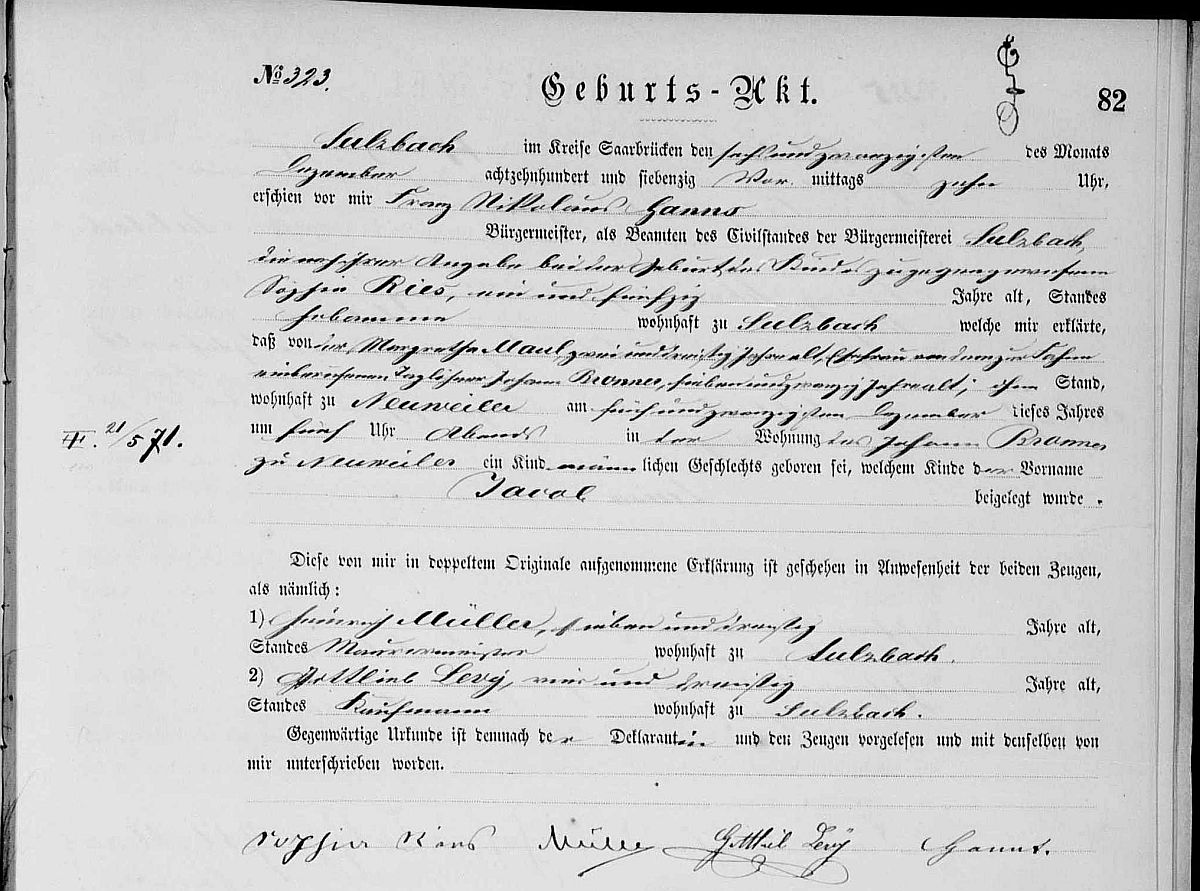 № 323.
Geburts-Akt.
82
Sulzbach im Kreise Saarbrücken den sechsundzwanzigsten des Monats
Dezember achtzehnhundert und siebenzig Vor mittags zehn Uhr,
erschien vor mir Franz Nikolaus Hanns
Bürgermeister, als Beamten des Civilstandes der Bürgermeisterei Sulzbach
die nach ihrer Angabe bei der Geburt des Kindes zugegen gewesene
Sophia Ries, ein und fünfzig Jahre alt, Standes
Hebamme wohnhaft zu Sulzbach welche mir erklärte,
daß von der Margretha Maul, zwei und dreißig Jahre alt, Ehefrau von dem zur Fahne
einberufenen Taglöhner Johann Bronner, sieben und zwanzig Jahre alt; ohne Stand,
wohnhaft zu Neuweiler am fünf und zwanzigsten Dezember dieses Jahres
um fünf Uhr Abends in der Wohnung des Johann Bronner
zu Neuweiler ein Kind männlichen Geschlechts geboren sei, welchem Kinde der Vorname
Jacob beigelegt wurde.
21/5 71.
Diese von mir in doppeltem Originale aufgenommene Erklärung ist geschehen in Anwesenheit der beiden Zeugen,
als nämlich:
1) Heinrich Müller, sieben und dreißig Jahre alt,
Standes Maurermeister wohnhaft zu Sulzbach.
2) Gottlieb Levy, vier und dreißig Jahre alt,
Standes Kaufmann wohnhaft zu Sulzbach.
Gegenwärtige Urkunde ist demnach der Deklarantin und den Zeugen vorgelesen und mit denselben von
mir unterschrieben worden.
Sophia Ries Müller Gottlieb Levy Hanns.